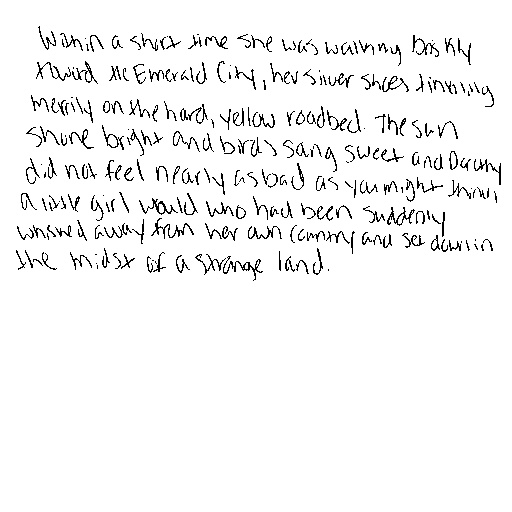 Within a short time she was walking briskly
toward the Emerald City, her silver shoes tinkling
merrily on the hard, yellow roadbed. The sun
shone bright and birds sang sweet and Dorothy
did not feel nearly as bad as you might think
a little girl would who had been suddenly
whisked away from her own country and set down in
the midst of a strange land.